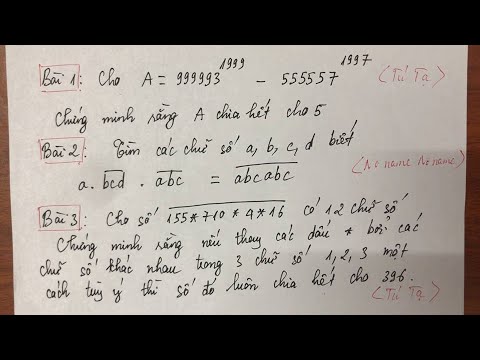 Bài 1: Cho A = 999993^1999 - 555557^1997 (Tú Tạ)
Chứng minh rằng A chia hết cho 5
Bài 2: Tìm các chữ số a, b, c, d biết
a. bcd . abc = abcabc (No name No name)
Bài 3: Cho số 155*710*4*16 có 12 chữ số
Chứng minh rằng nếu thay các dấu * bởi các
chữ số khác nhau trong 3 chữ số 1, 2, 3 một
cách tuỳ ý thì số đó luôn chia hết cho 396.
(Tú Tạ)